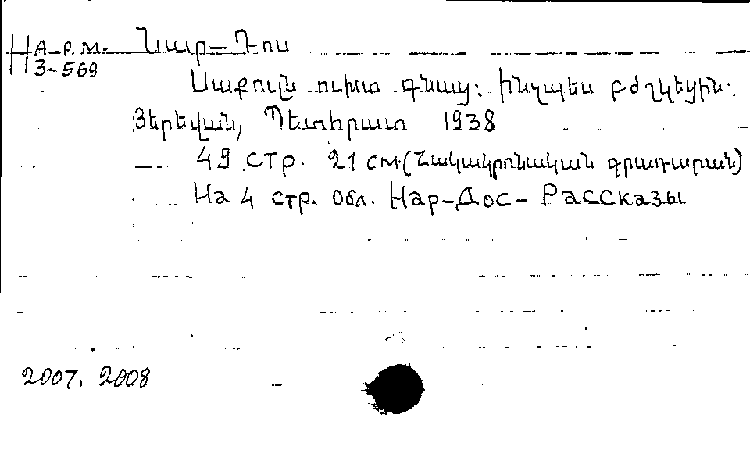 На арм. Նար-Դոս
3-569
Սաքուլն ուխտ գնաց: Ինչպես բժշկեցին:
Յերեվան, Պետհրատ 1938
49 стр. 21 см. (Հակակրոնական գրադարան)
На 4 стр. обл. Нар-Дос - Рассказы
2007, 2008